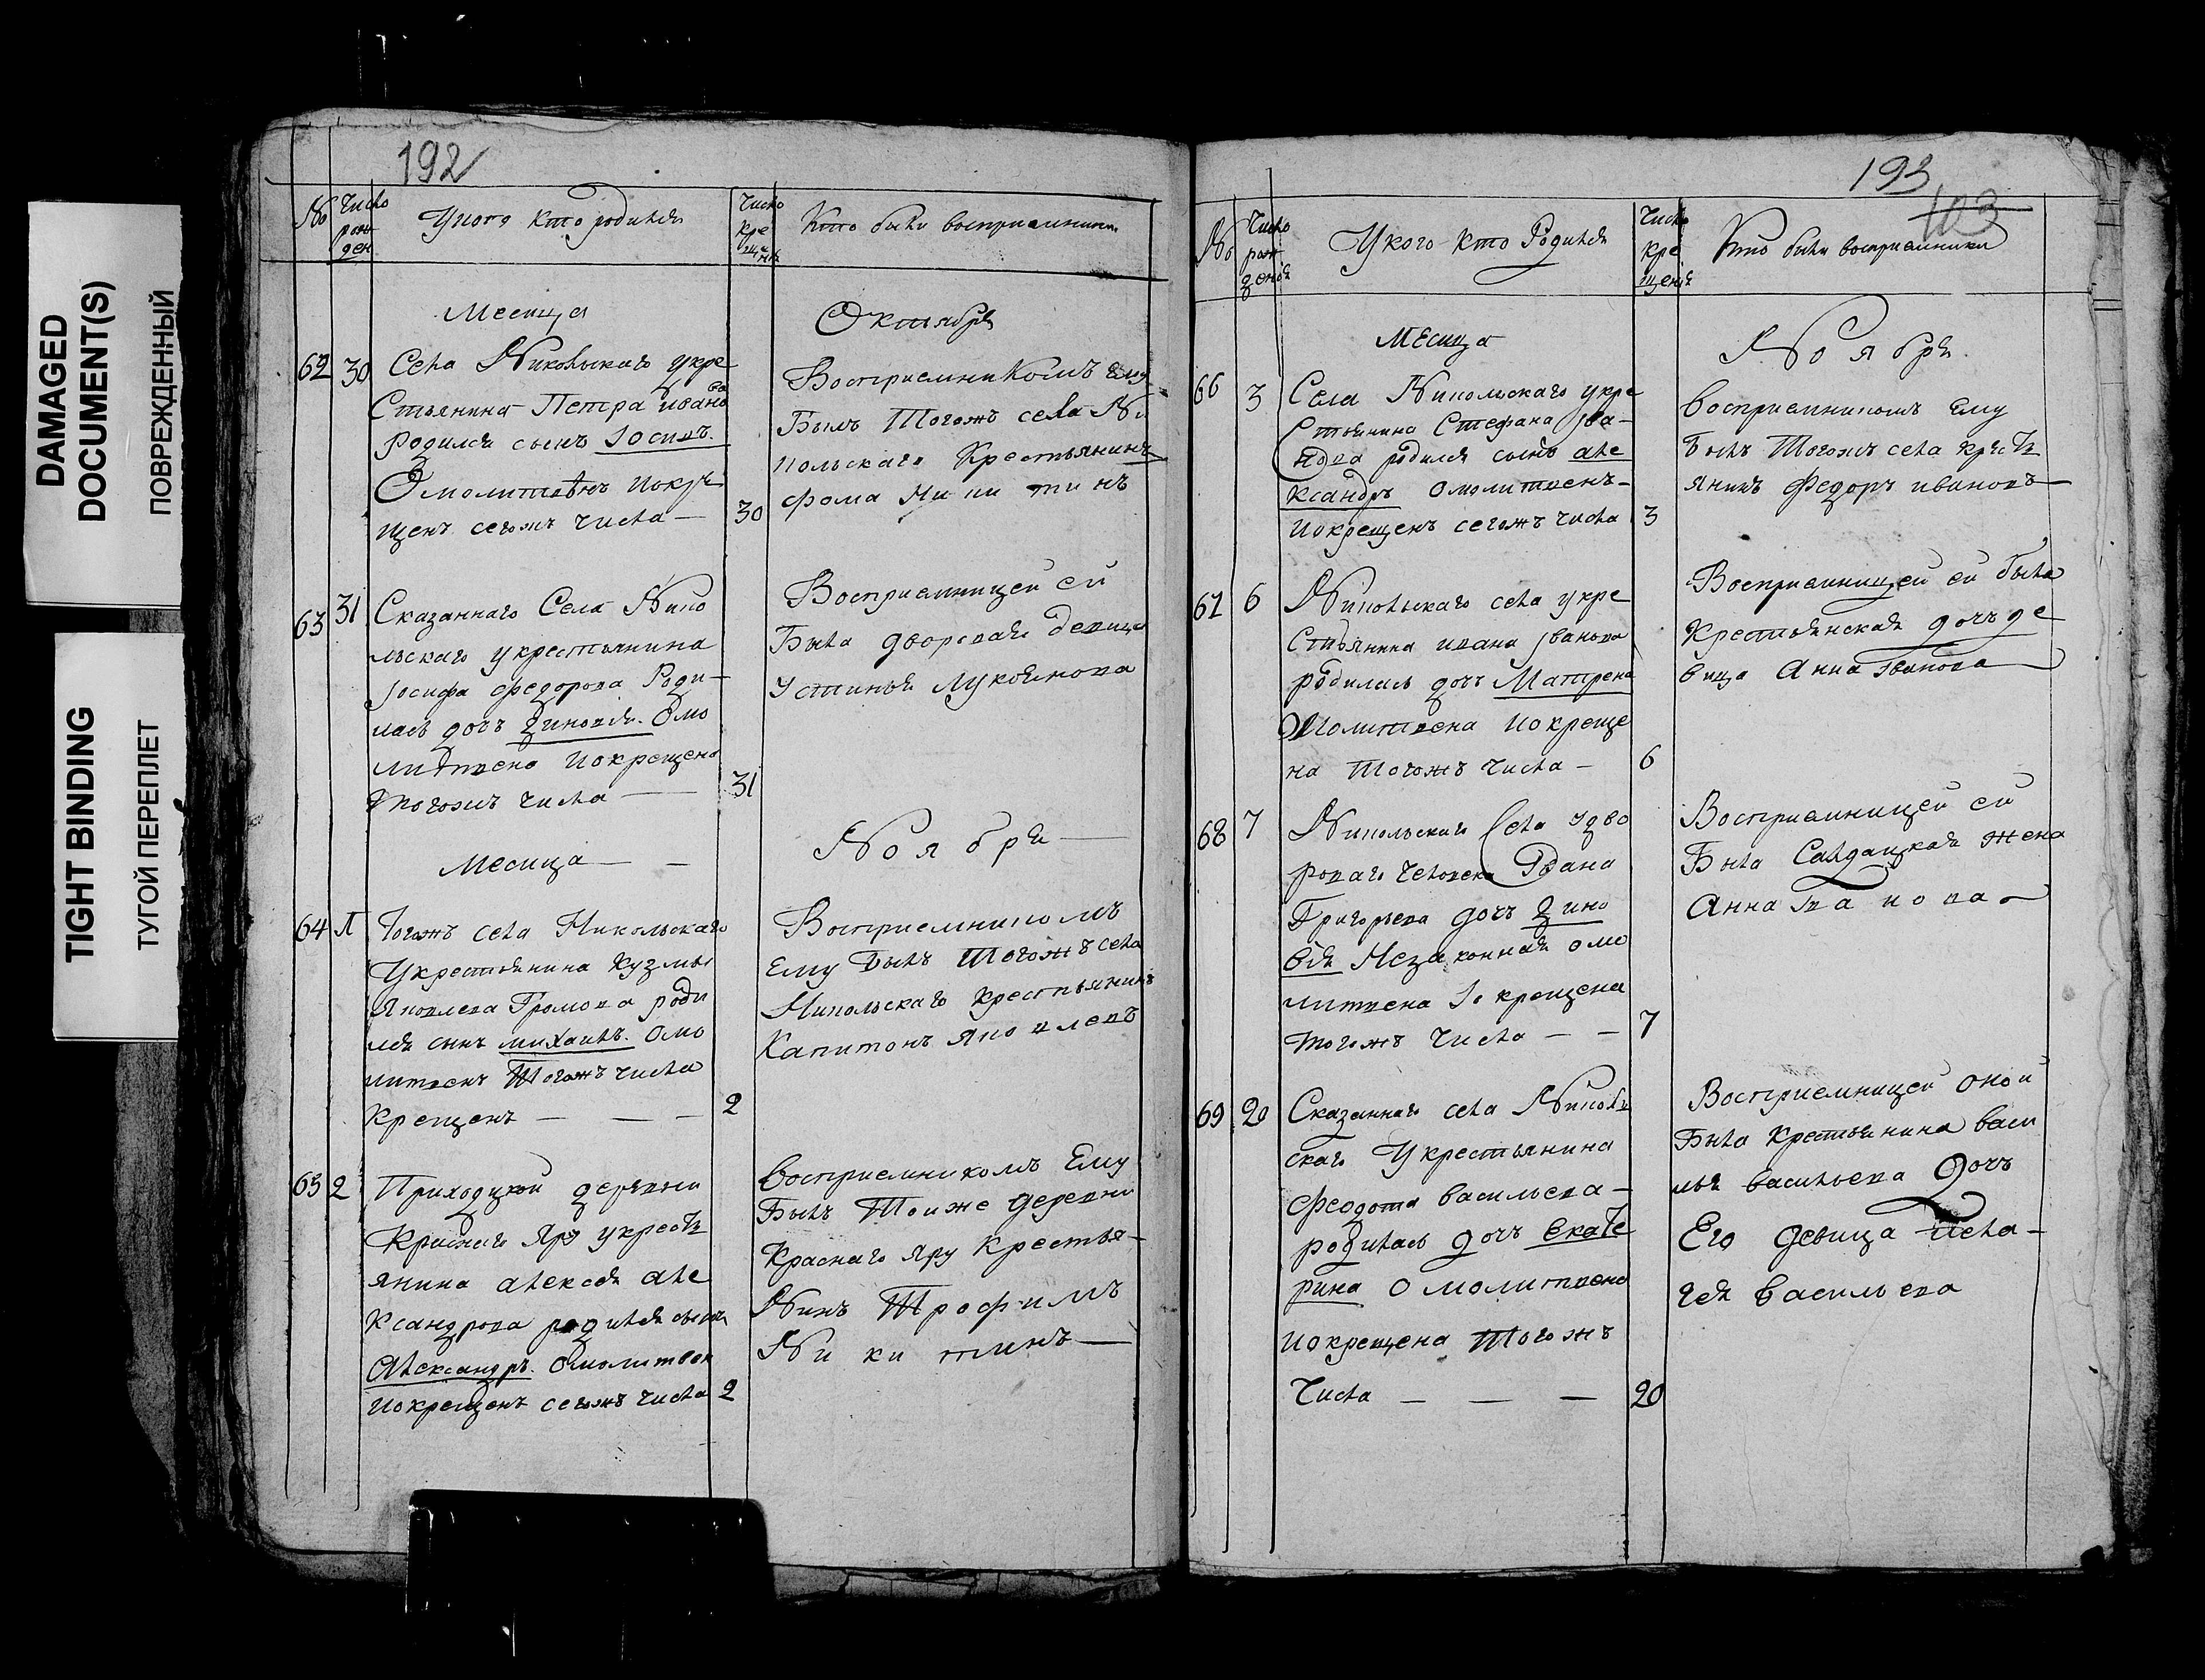 DAMAGED
DOCUMENT(S)
ПОВРЕЖДЕННЫЙ
TIGHT BINDING
ТУГОЙ ПЕРЕПЛЕТ
192
№
Число рожден
У кого кто родился
Число крещения
Кто были восприемники
Месяца
Октября
62
30
Села Никольскаго укре
стьянина Петра Ивано
ва
родился сынъ Іосипъ.
Омолитвенъ и окре
щенъ сегожъ числа —
30
Восприемникомъ ему
Былъ тогожъ села Ни
кольскаго Крестьянинъ
Фома Никитинъ
63
31
Сказаннаго Села Нико
льскаго у крестьянина
Іосифа Федорова Роди—
лась дочь Зиновія. Омо
литвена и окрещена
тогожъ числа —
31
Восприемницей ей
Была дворовая девица
Устинья Лукоянова
Месяца —
Ноября —
64
Тогожъ села Никольскаго
У крестьянина Кузмы
Яковлева Громова роди
лся сынъ михаилъ. Омо
литвенъ тогожъ числа
Крещенъ — — —
2
Восприемникомъ
Ему Былъ тогожъ села
Никольскаго крестьянинъ
Капитонъ Яковлевъ
65
2
Приходской деревни
Краснаго Яру у кресть
янина алексея але
ксандрова родился сынъ
Александръ. Омолитвен
и окрещенъ сегожъ числа
2
Восприемникомъ Ему
Былъ тоиже деревни
Краснаго Яру Крестья—
нинъ Трофимъ
Никитинъ —
193
103
№
Число рожденія
У кого кто Родился
Число крещенія
Кто были восприемники
Месяца
Ноября.
66
3
Села Никольскаго укре
стьянина Стефана Ива—
нова родился сынъ але
ксандръ омолитвенъ—
и окрещенъ сегожъ числа
3
восприемникомъ ему
былъ тогожъ села кресть
янинъ Федоръ ивановъ —
67
6
Никольскаго села укре
стьянина ивана Іванова
родилась дочь Матрена
Омолитвена и окреще
на тогожъ числа —
6
Восприемницей ей была
Крестьянская дочь де
вица Анна Іванова
68
7
Никольскаго Села у дво
роваго человека Ивана
Григорьева дочь Зино
вія Незаконная омо
литвена Іокрещена
тогожъ числа — —
7
Восприемницей ей
Была Салдацкая жена
Анна Іванова
69
20
Сказаннаго села Николь
скаго У крестьянина
Феодота васильева —
родилась дочь Екате
рина Омолитвена
и окрещена тогожъ
Числа — — —
20
Восприемницей оной
Была Крестьянина васи
лья васильева Дочь
Его девица Пела—
гея васильева